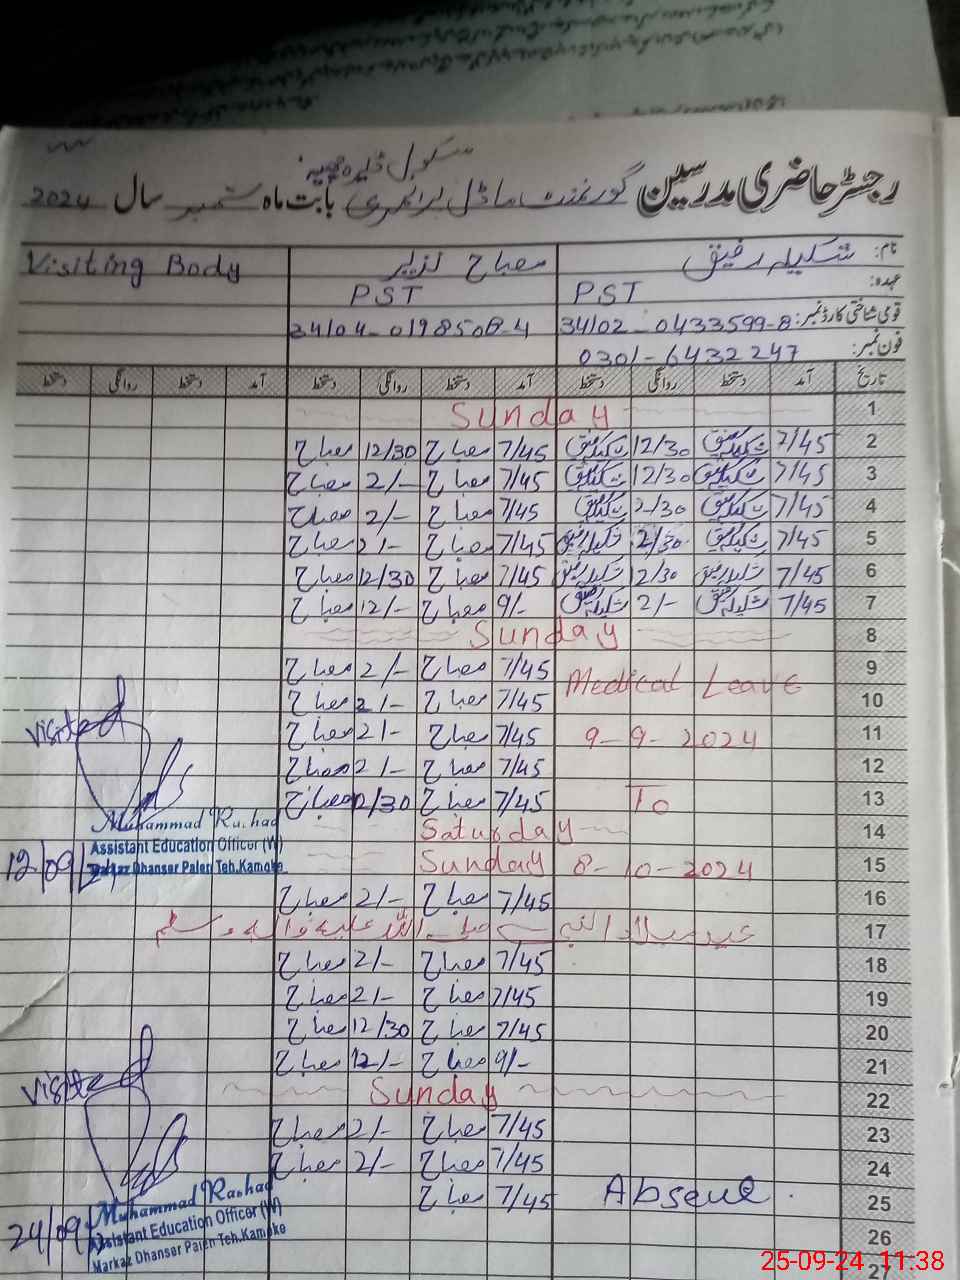 سکول ڈیرہ
رجسٹر حاضری مدرسین گورنمنٹ ماڈل پرائمری بابت ماہ ستمبر سال 2024
نام: شکیلہ رفیق مصباح نزیر Visiting Body
عہدہ: PST PST
قومی شناختی کارڈ نمبر: 34102-0433599-8 34104-0198508-4
فون نمبر: 0301-6432247
تاریخ آمد دستخط روانگی دستخط آمد دستخط روانگی دستخط آمد دستخط روانگی دستخط
1 Sunday
2 7/45 شکیلہ رفیق 12/30 شکیلہ رفیق 7/45 مصباح 12/30 مصباح
3 7/45 شکیلہ رفیق 12/30 شکیلہ رفیق 7/45 مصباح 2/- مصباح
4 7/45 شکیلہ رفیق 2/30 شکیلہ رفیق 7/45 مصباح 2/- مصباح
5 7/45 شکیلہ رفیق 2/30 شکیلہ رفیق 7/45 مصباح 2/- مصباح
6 7/45 شکیلہ رفیق 12/30 شکیلہ رفیق 7/45 مصباح 12/30 مصباح
7 7/45 شکیلہ رفیق 2/- شکیلہ رفیق 9/- مصباح 12/- مصباح
8 Sunday
9 Medical Leave 7/45 مصباح 2/- مصباح
10 7/45 مصباح 2/- مصباح
11 9-9-2024 7/45 مصباح 2/- مصباح
visited
12 7/45 مصباح 2/- مصباح
13 To 7/45 مصباح 12/30 مصباح
14 Saturday
Muhammad Rashad
Assistant Education Officer (W)
Markaz Dhanser Paien Teh.Kamoke
12/09/24
15 8-10-2024 Sunday
16 7/45 مصباح 2/- مصباح
17 عید میلاد النبی صلی اللہ علیہ والہ وسلم
18 7/45 مصباح 2/- مصباح
19 7/45 مصباح 2/- مصباح
20 7/45 مصباح 12/30 مصباح
21 9/- مصباح 12/- مصباح
22 Sunday
visited
23 7/45 مصباح 2/- مصباح
24 7/45 مصباح 2/- مصباح
25 Absent. 7/45 مصباح
Muhammad Rashad
Assistant Education Officer (W)
Markaz Dhanser Paien Teh.Kamoke
24/09/
26
27
25-09-24 11:38